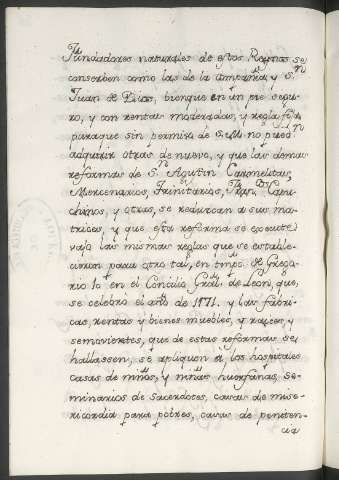 Fundadores naturales de estos Reynos se
conserven como las de la Compañia y S.n
Juan de Dios, bien que en un pie segu-
ro, y con rentas moderadas, y regla fixa
para que sin permiso de S.M. no pued.n
adquirir otras de nuevo, y que las demas
reformas de S.n Agustin Carmelitas,
Mercenarios, Trinitarios, Fran.cos Capu-
chinos, y otras, se reduzcan a sus ma-
trices, y que esta reforma se execute
vajo las mismas reglas que se estable-
cieron para otro tal, en tmpo. de Grego-
rio 10 en el Concilio Gral. de Leon, que
se celebro el año de 1171. y las fabri-
cas, rentas y bienes muebles, y rayces, y
semovientes, que de estas reformas se
hallassen, se apliquen a los hospitales
casas de niños, y niñas huerfanas, se-
minarios de Sacerdotes, casas de mise-
ricordia para pobres, casas de peniten-
cia